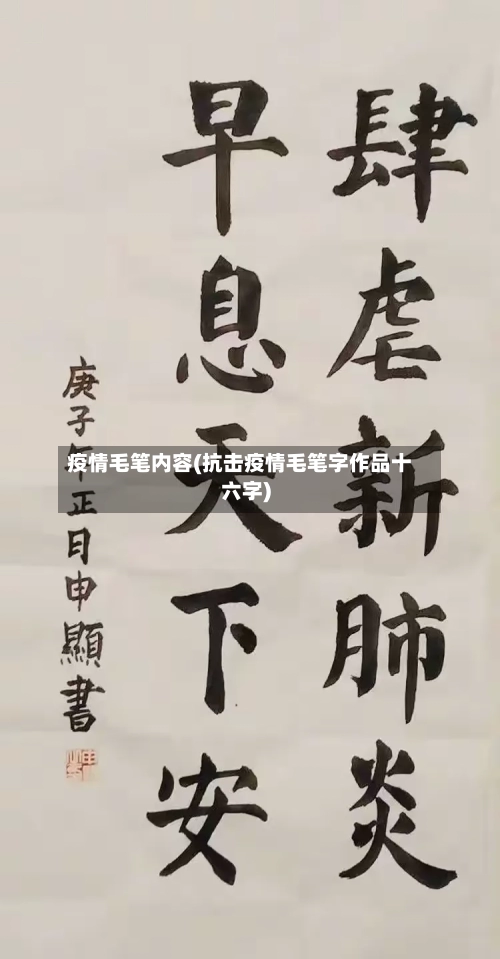 肆虐新肺炎
早息天下安
庚子年正月申顯書
疫情毛笔内容(抗击疫情毛笔字作品十
六字)